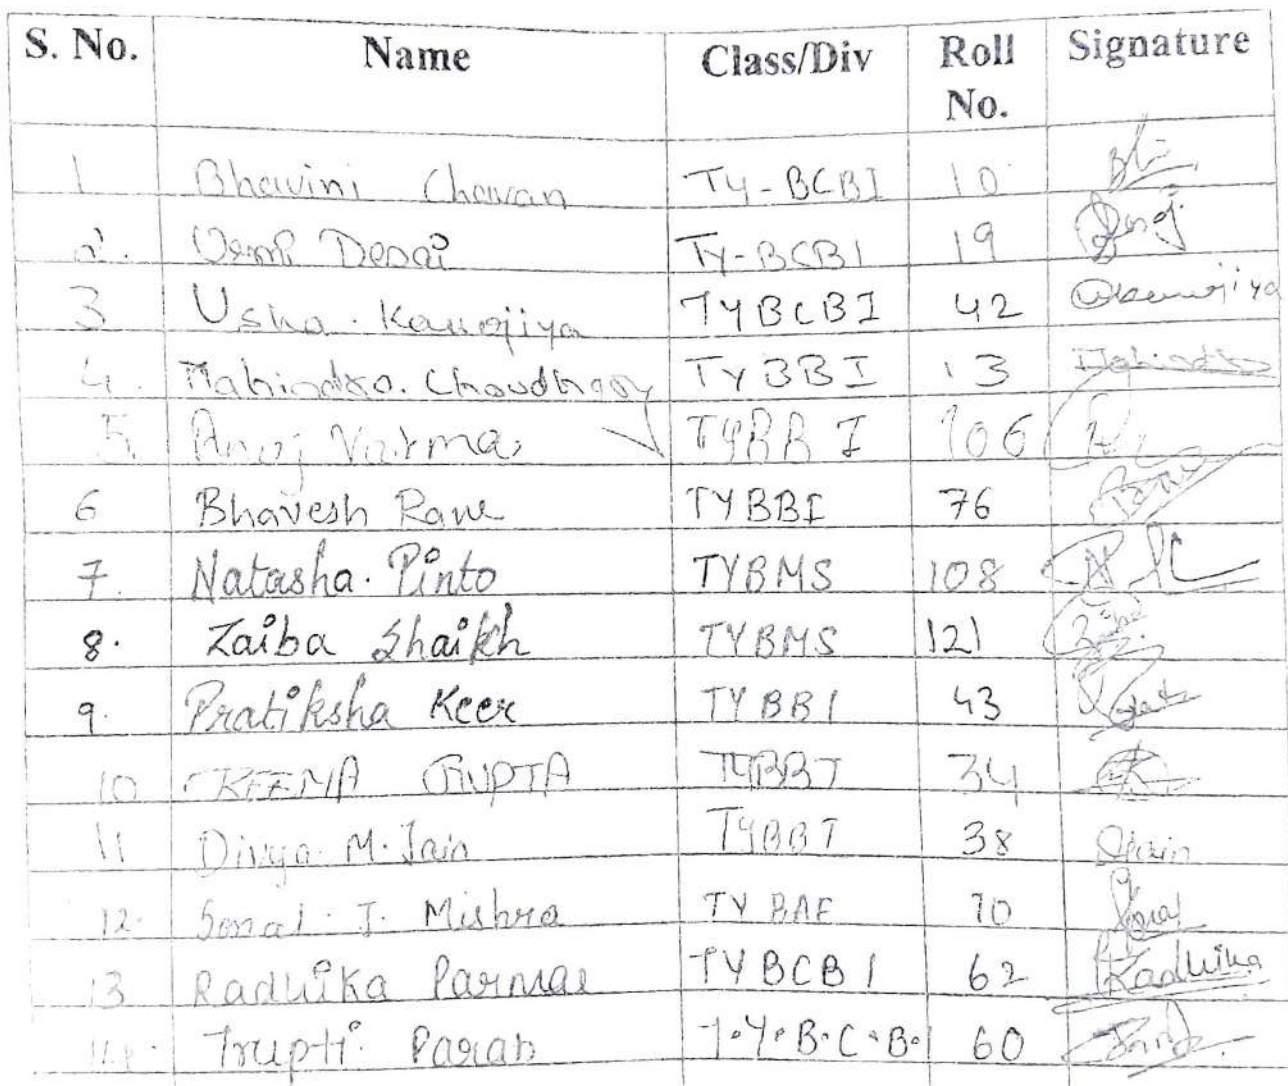 S. No. Name Class/Div Roll No. Signature
1 Bhavini Chavan Ty-BCBI 10
2. Urmi Desai Ty-BCBI 19
3 Usha. Kanojiya TYBCBI 42 Ukanojiya
4. Mahindra. Choudhary TYBBI 13 Mahindra
5. Anuj Varma TYBBI 106
6 Bhavesh Rane TYBBI 76
7. Natasha. Pinto TYBMS 108
8. Zaiba Shaikh TYBMS 121 Zaiba
9. Pratiksha Keer TYBBI 43
10 REEMA GUPTA TYBBI 34
11 Divya. M. Jain TYBBI 38 DJain
12. Sonal. J. Mishra TYBAF 70
13 Radhika Parmar TYBCBI 62 Radhika
14. Trupti. Parab T.Y.B.C.B.I 60